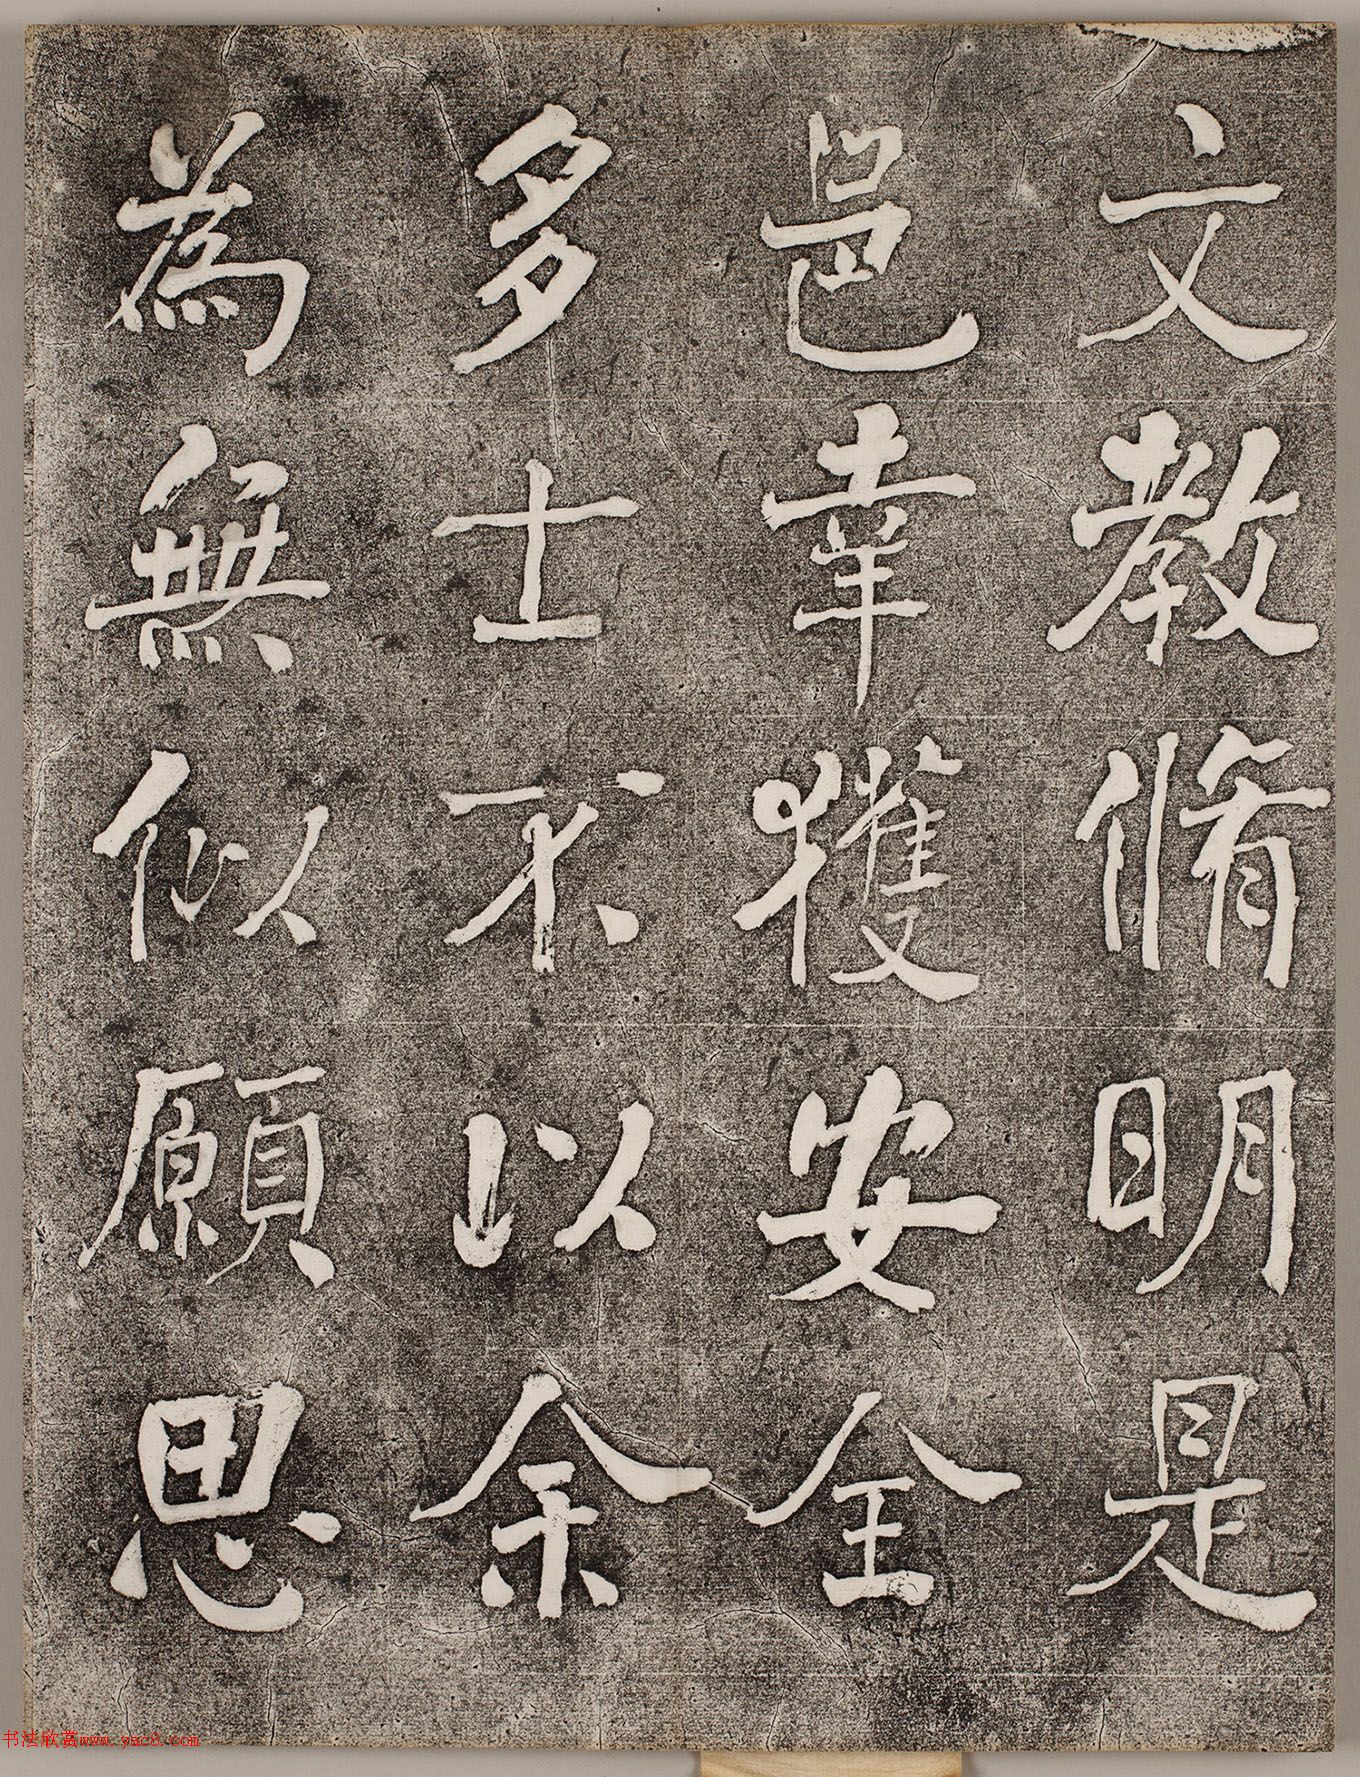 文教脩明是
邑幸獲安全
多士不以余
為無似願思
书法欣赏www.yac8.com